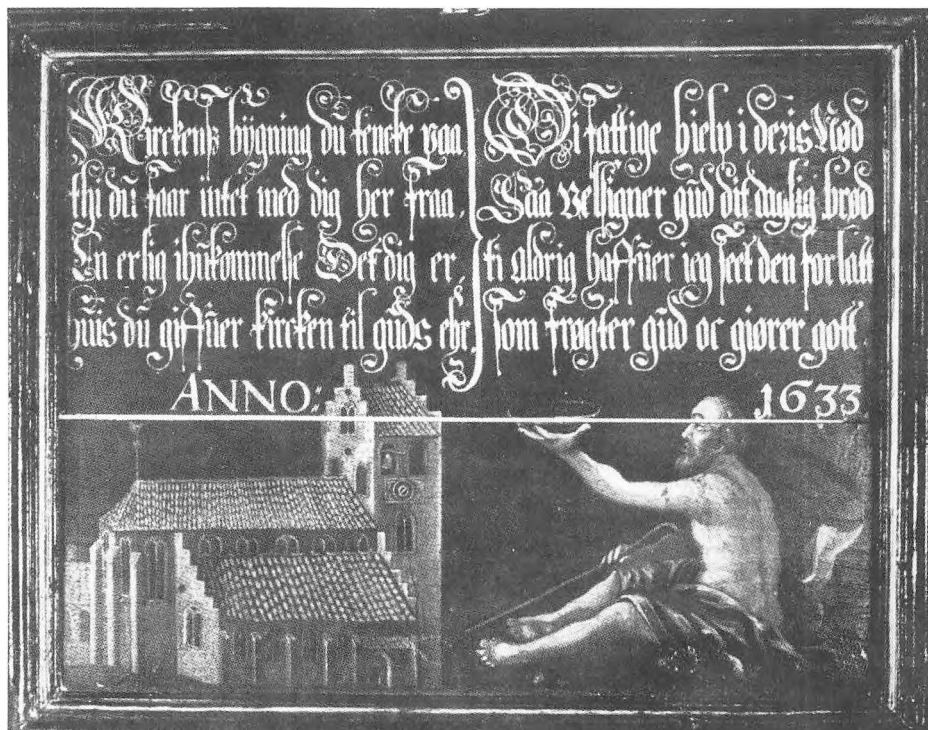 Kirckens bÿgning dŭ tencke paa
thi dŭ faar intet med dig her fraa,
En erlig ihŭkommelse Det dig er,
hŭis dŭ giffŭer kircken til gŭds ehr,
Di fattige hielp i deris Nød
Saa Velsigner gŭd dit daglig brød
ti Aldrig haffŭer ieg seet den forlatt
som frøgter gŭd oc giører gott.
ANNO: 1633